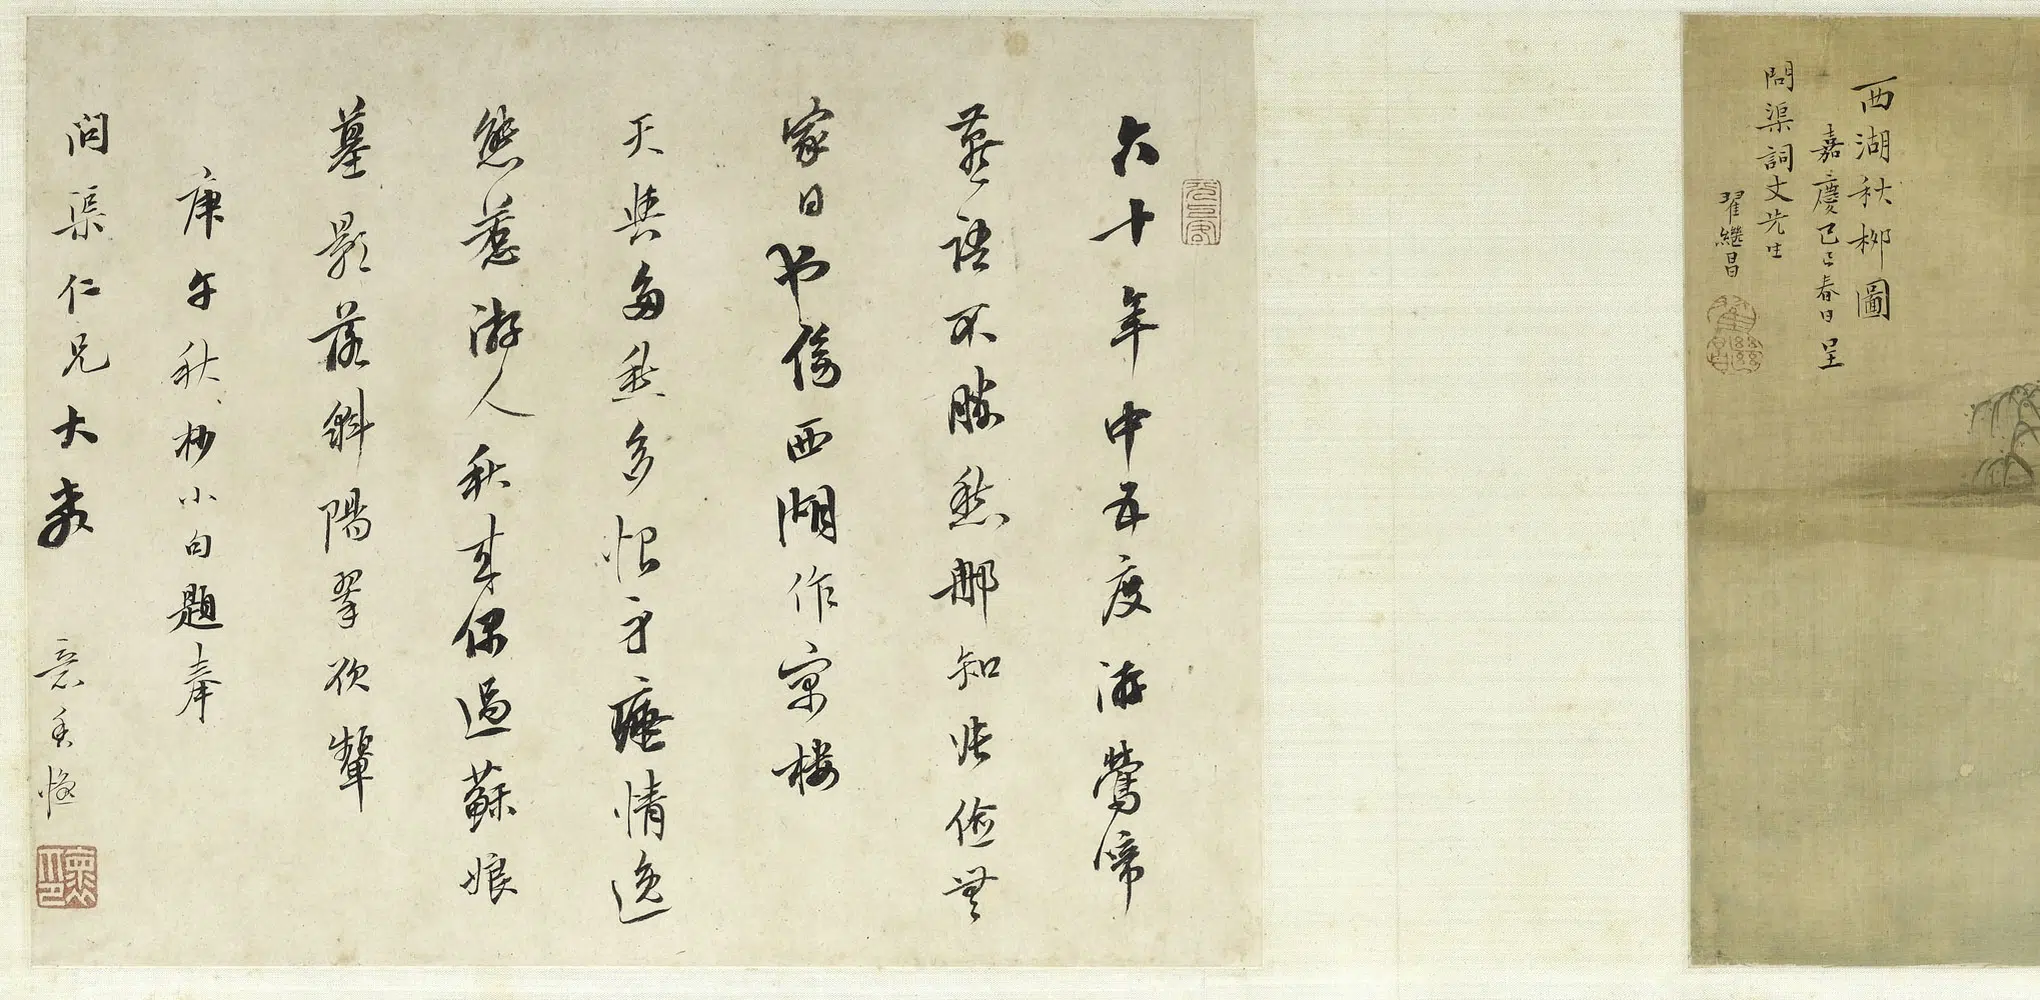 西湖秋柳圖
嘉慶己巳春日呈
問渠詞丈先生
翟繼昌
六十年中五度游鶯啼
燕語不勝愁那知湖
家日西湖作寓樓
天與多愁多恨身情逸
態惹游人秋來偶過蘇娘
墓影落斜陽翠欲顰
庚午秋杪小句題奉
問渠仁兄大雅